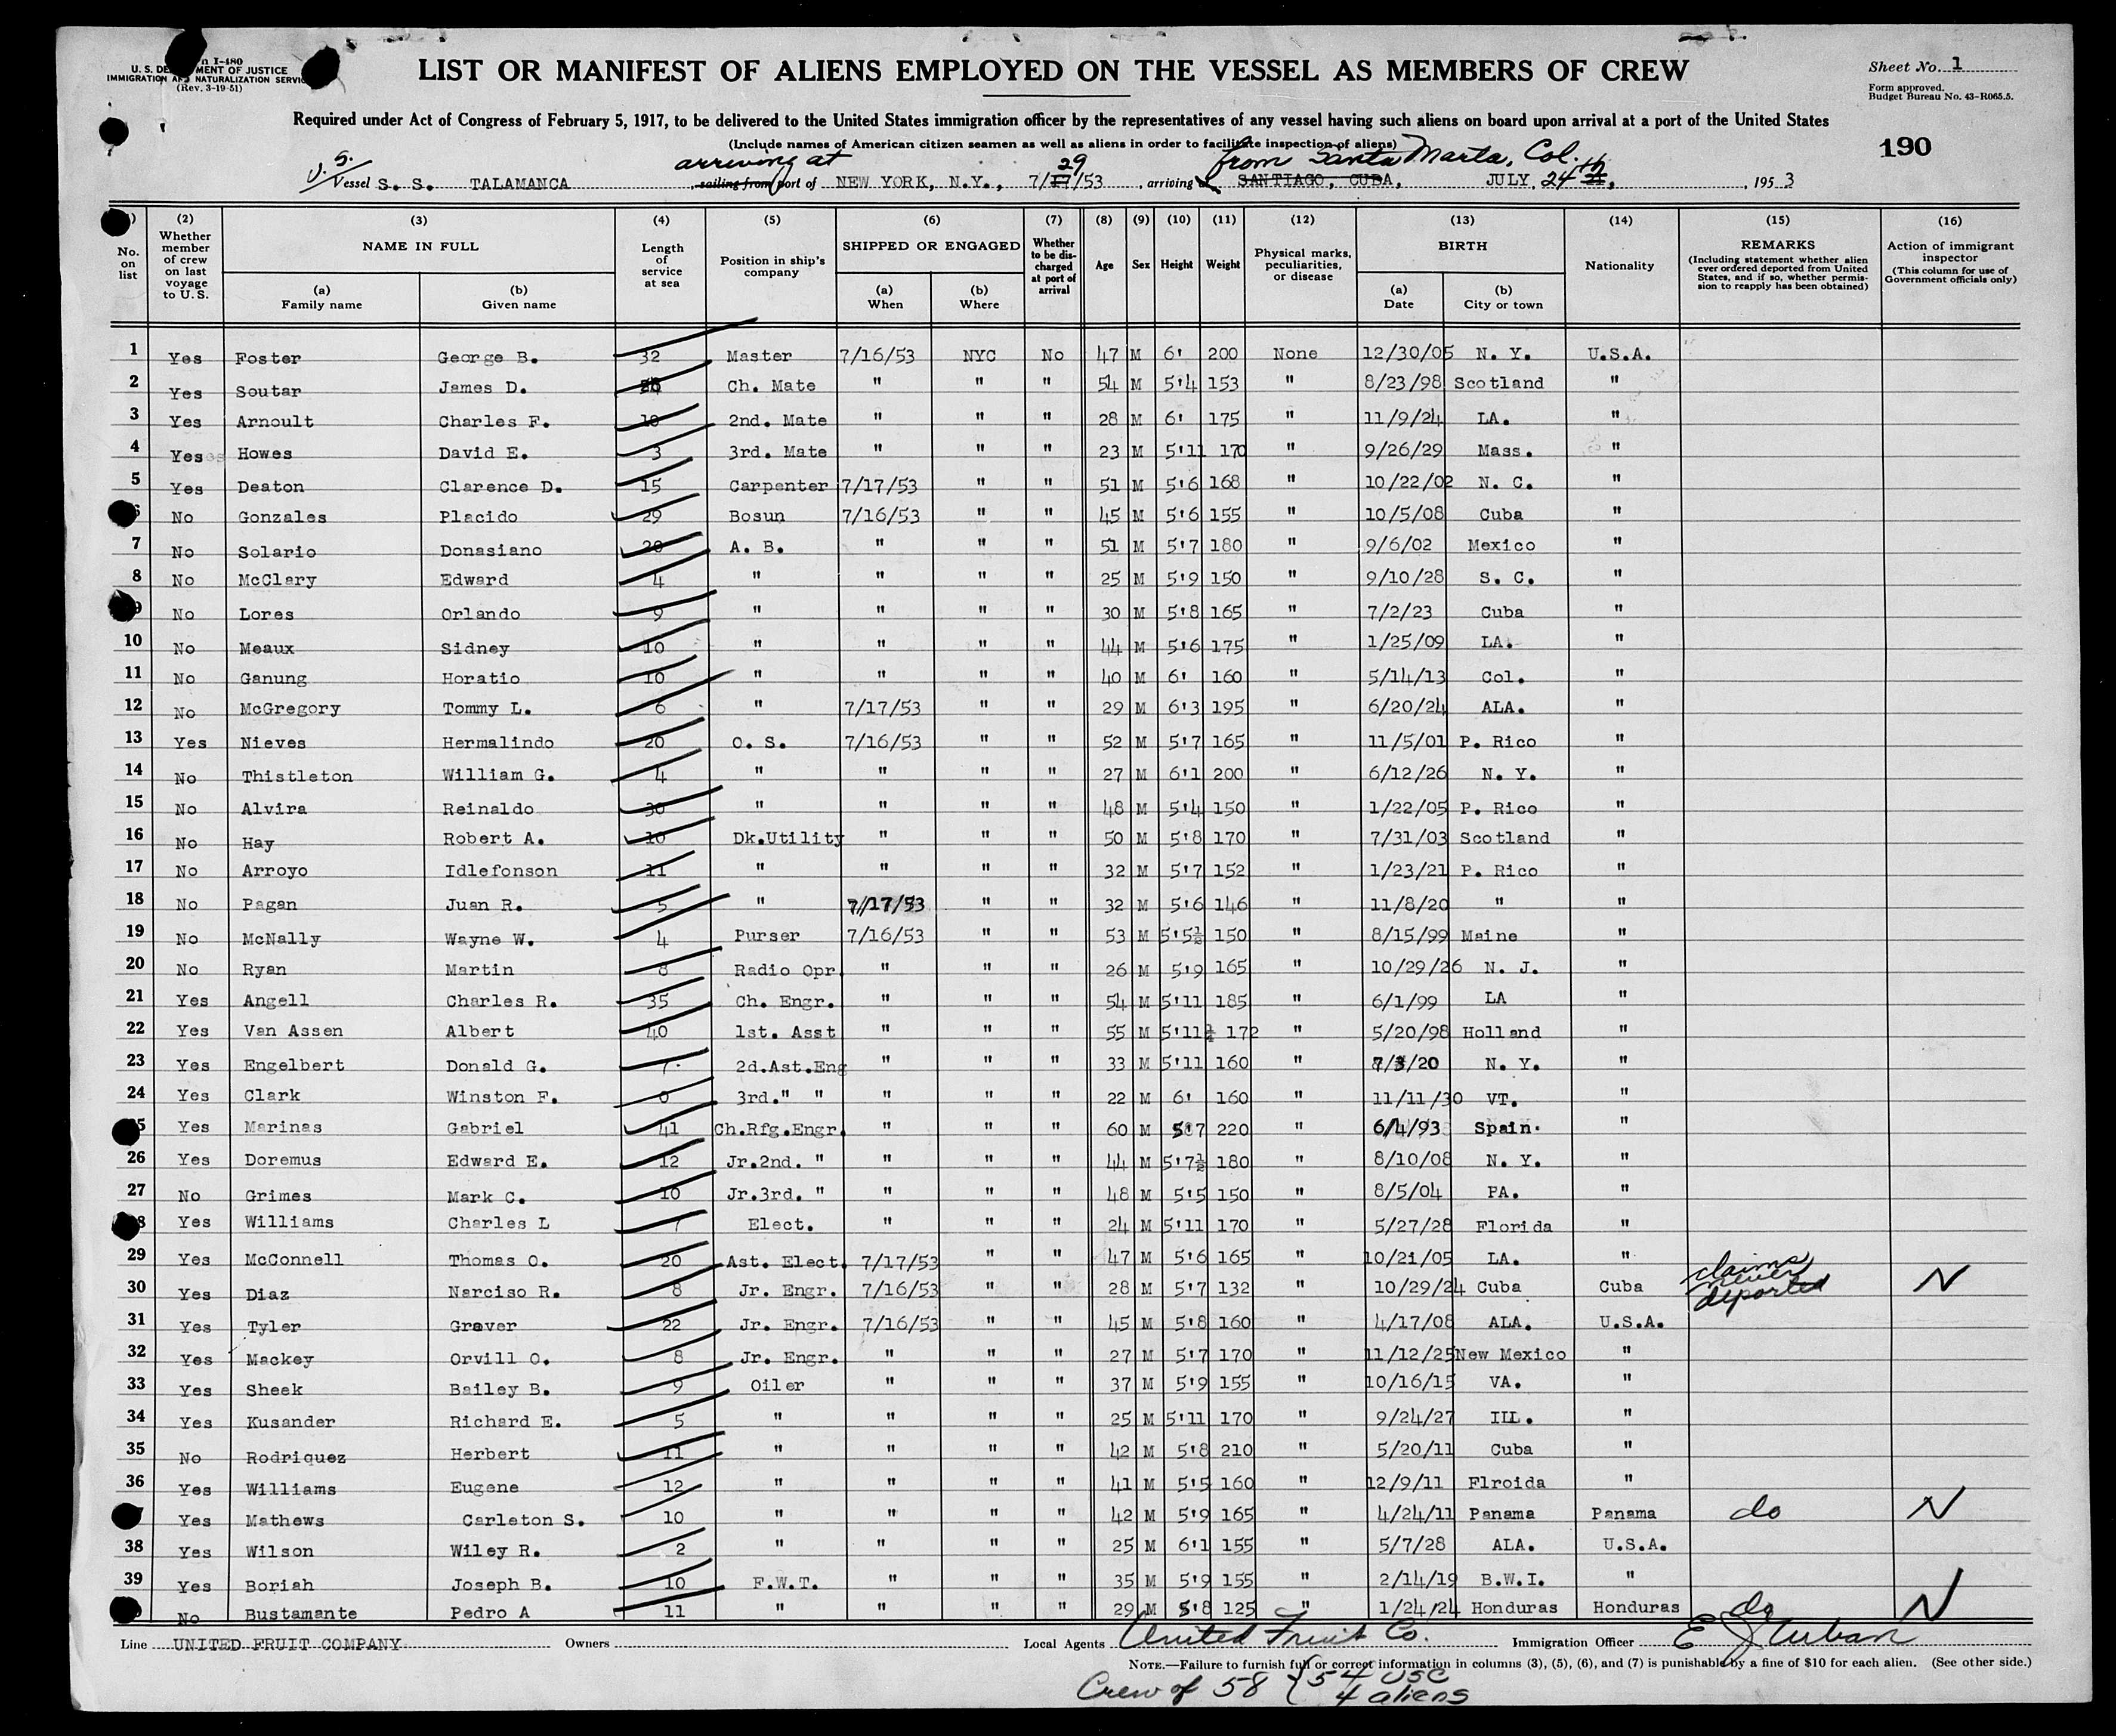 Form I-480
U. S. DEPARTMENT OF JUSTICE
IMMIGRATION AND NATURALIZATION SERVICE
(Rev. 3-19-51)
LIST OR MANIFEST OF ALIENS EMPLOYED ON THE VESSEL AS MEMBERS OF CREW
Sheet No. 1
Form approved.
Budget Bureau No. 43-R065.5.
Required under Act of Congress of February 5, 1917, to be delivered to the United States immigration officer by the representatives of any vessel having such aliens on board upon arrival at a port of the United States
(Include names of American citizen seamen as well as aliens in order to facilitate inspection of aliens)
190
U.S. arriving at 29 from Santa Marta, Col.
Vessel S. S. TALAMANCA sailing from port of NEW YORK, N.Y., 7/ /53, arriving SANTIAGO, CUBA, JULY 24th, 1953
(2) (3) (4) (5) (6) (7) (8) (9) (10) (11) (12) (13) (14) (15) (16)
No. on list
Whether member of crew on last voyage to U.S.
NAME IN FULL
(a) Family name
(b) Given name
Length of service at sea
Position in ship's company
SHIPPED OR ENGAGED
(a) When
(b) Where
Whether to be discharged at port of arrival
Age
Sex
Height
Weight
Physical marks, peculiarities, or disease
BIRTH
(a) Date
(b) City or town
Nationality
REMARKS
(Including statement whether alien ever ordered deported from United States, and if so, whether permission to reapply has been obtained)
Action of immigrant inspector
(This column for use of Government officials only)
1 Yes Foster George B. 32 Master 7/16/53 NYC No 47 M 6' 200 None 12/30/05 N. Y. U.S.A.
2 Yes Soutar James D. Ch. Mate " " " 54 M 5'4 153 " 8/23/98 Scotland "
3 Yes Arnoult Charles F. 10 2nd. Mate " " " 28 M 6' 175 " 11/9/24 LA. "
4 Yes Howes David E. 3 3rd. Mate " " " 23 M 5'11 170 " 9/26/29 Mass. "
5 Yes Deaton Clarence D. 15 Carpenter 7/17/53 " " 51 M 5'6 168 " 10/22/02 N. C. "
6 No Gonzales Placido 29 Bosun 7/16/53 " " 45 M 5'6 155 " 10/5/08 Cuba "
7 No Solario Donasiano 20 A. B. " " " 51 M 5'7 180 " 9/6/02 Mexico "
8 No McClary Edward 4 " " " " 25 M 5'9 150 " 9/10/28 S. C. "
9 No Lores Orlando 9 " " " " 30 M 5'8 165 " 7/2/23 Cuba "
10 No Meaux Sidney 10 " " " " 44 M 5'6 175 " 1/25/09 LA. "
11 No Ganung Horatio 10 " " " " 40 M 6' 160 " 5/14/13 Col. "
12 No McGregory Tommy L. 6 " 7/17/53 " " 29 M 6'3 195 " 6/20/24 ALA. "
13 Yes Nieves Hermalindo 20 O. S. 7/16/53 " " 52 M 5'7 165 " 11/5/01 P. Rico "
14 No Thistleton William G. 4 " " " " 27 M 6'1 200 " 6/12/26 N. Y. "
15 No Alvira Reinaldo 30 " " " " 48 M 5'4 150 " 1/22/05 P. Rico "
16 No Hay Robert A. 10 Dk.Utility " " " 50 M 5'8 170 " 7/31/03 Scotland "
17 No Arroyo Idlefonson 11 " " " " 32 M 5'7 152 " 1/23/21 P. Rico "
18 No Pagan Juan R. 5 " 7/17/53 " " 32 M 5'6 146 " 11/8/20 " "
19 No McNally Wayne W. 4 Purser 7/16/53 " " 53 M 5'5½ 150 " 8/15/99 Maine "
20 No Ryan Martin 8 Radio Opr. " " " 26 M 5'9 165 " 10/29/26 N. J. "
21 Yes Angell Charles R. 35 Ch. Engr. " " " 54 M 5'11 185 " 6/1/99 LA "
22 Yes Van Assen Albert 40 1st. Asst " " " 55 M 5'11½ 172 " 5/20/98 Holland "
23 Yes Engelbert Donald G. 7 2d.Ast.Eng " " " 33 M 5'11 160 " 7/3/20 N. Y. "
24 Yes Clark Winston F. 3rd." " " " " 22 M 6' 160 " 11/11/30 VT. "
25 Yes Marinas Gabriel 41 Ch.Rfg.Engr. " " " 60 M 5'7 220 " 6/4/93 Spain. "
26 Yes Doremus Edward E. 12 Jr.2nd. " " " " 44 M 5'7½ 180 " 8/10/08 N. Y. "
27 No Grimes Mark C. 10 Jr.3rd. " " " " 48 M 5'5 150 " 8/5/04 PA. "
28 Yes Williams Charles L 7 Elect. " " " 24 M 5'11 170 " 5/27/28 Florida "
29 Yes McConnell Thomas O. 20 Ast. Elect. 7/17/53 " " 47 M 5'6 165 " 10/21/05 LA. "
30 Yes Diaz Narciso R. 8 Jr. Engr. 7/16/53 " " 28 M 5'7 132 " 10/29/24 Cuba Cuba claims never deported N
31 Yes Tyler Graver 22 Jr. Engr. 7/16/53 " " 45 M 5'8 160 " 4/17/08 ALA. U.S.A.
32 Yes Mackey Orvill O. 8 Jr. Engr. " " " 27 M 5'7 170 " 11/12/25 New Mexico "
33 Yes Sheek Bailey B. 9 Oiler " " " 37 M 5'9 155 " 10/16/15 VA. "
34 Yes Kusander Richard E. 5 " " " " 25 M 5'11 170 " 9/24/27 ILL. "
35 No Rodriquez Herbert 11 " " " " 42 M 5'8 210 " 5/20/11 Cuba "
36 Yes Williams Eugene 12 " " " " 41 M 5'5 160 " 12/9/11 Flroida "
Yes Mathews Carleton S. 10 " " " " 42 M 5'9 165 " 4/24/11 Panama Panama do N
38 Yes Wilson Wiley R. 2 " " " " 25 M 6'1 155 " 5/7/28 ALA. U.S.A.
39 Yes Boriah Joseph B. 10 F.W.T. " " " 35 M 5'9 155 " 2/14/19 B.W.I. "
No Bustamante Pedro A 11 " " " " 29 M 5'8 125 " 1/24/24 Honduras Honduras do N
Line UNITED FRUIT COMPANY Owners Local Agents United Fruit Co. Immigration Officer E J Urban
NOTE.—Failure to furnish full or correct information in columns (3), (5), (6), and (7) is punishable by a fine of $10 for each alien. (See other side.)
Crew of 58 { 54 USC
4 aliens